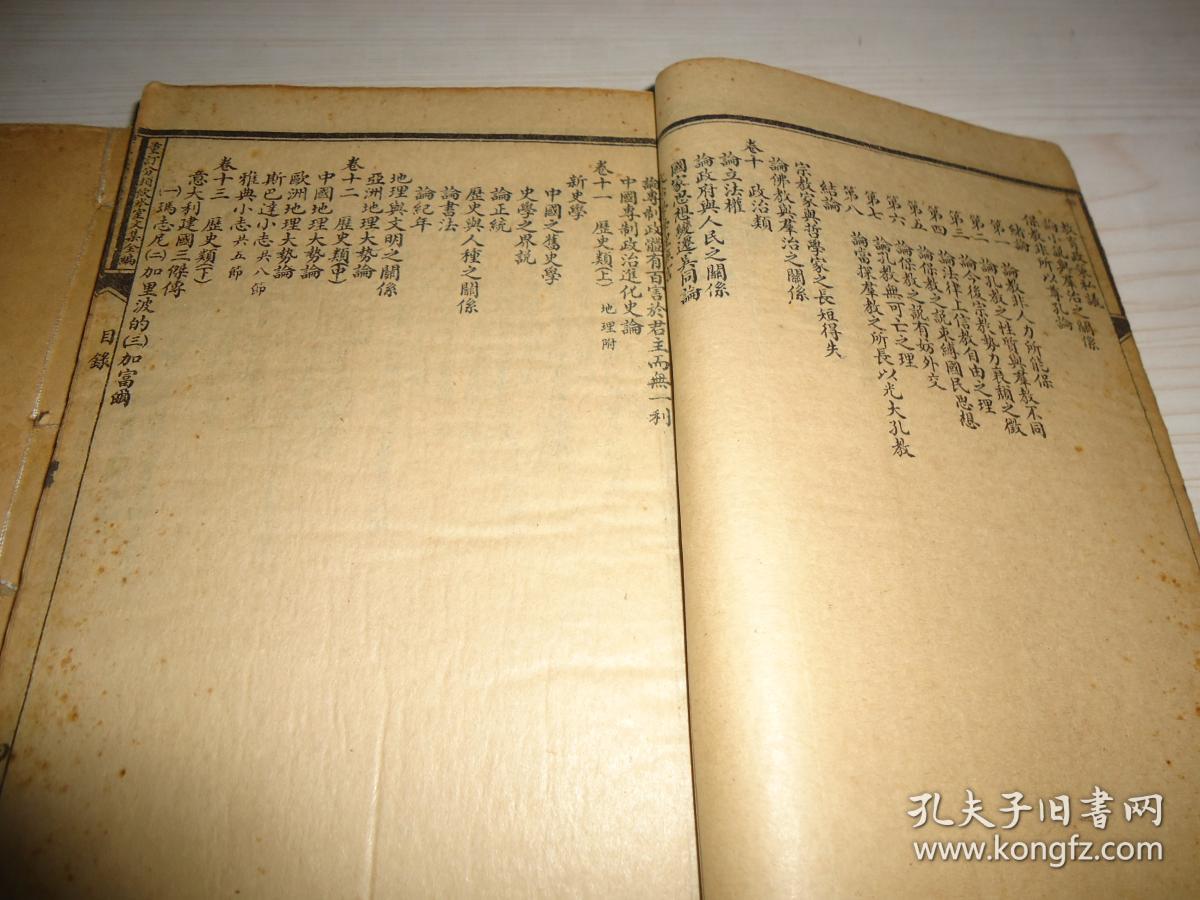 教育政策私議
論小說與羣治之關係
保教非所以尊孔論
緒論
第一 論教非人力所能保
第二 論孔教之性質與羣教不同
第三 論今後宗教勢力衰頹之徵
第四 論法律上信教自由之理
第五 論保教之說束縛國民思想
第六 論保教之說有妨外交
第七 論孔教無可亡之理
第八 論當採羣教之所長以光大孔教
結論
宗教家與哲學家之長短得失
論佛教與羣治之關係
卷十 政治類
論立法權
論政府與人民之關係
國家思想變遷異同論
論專制政體有百害於君主而無一利
中國專制政治進化史論
卷十一 歷史類(上) 地理附
新史學
中國之舊史學
史學之界說
歷史與人種之關係
論正統
論書法
論紀年
地理與文明之關係
亞洲地理大勢論
卷十二 歷史類(中)
中國地理大勢論
歐洲地理大勢論
斯巴達小志共八節
雅典小志共五節
卷十三 歷史類(下)
意大利建國三傑傳
(一)瑪志尼(二)加里波的(三)加富爾
重訂分類飲冰室文集全編
目錄
孔夫子旧书网
www.kongfz.com